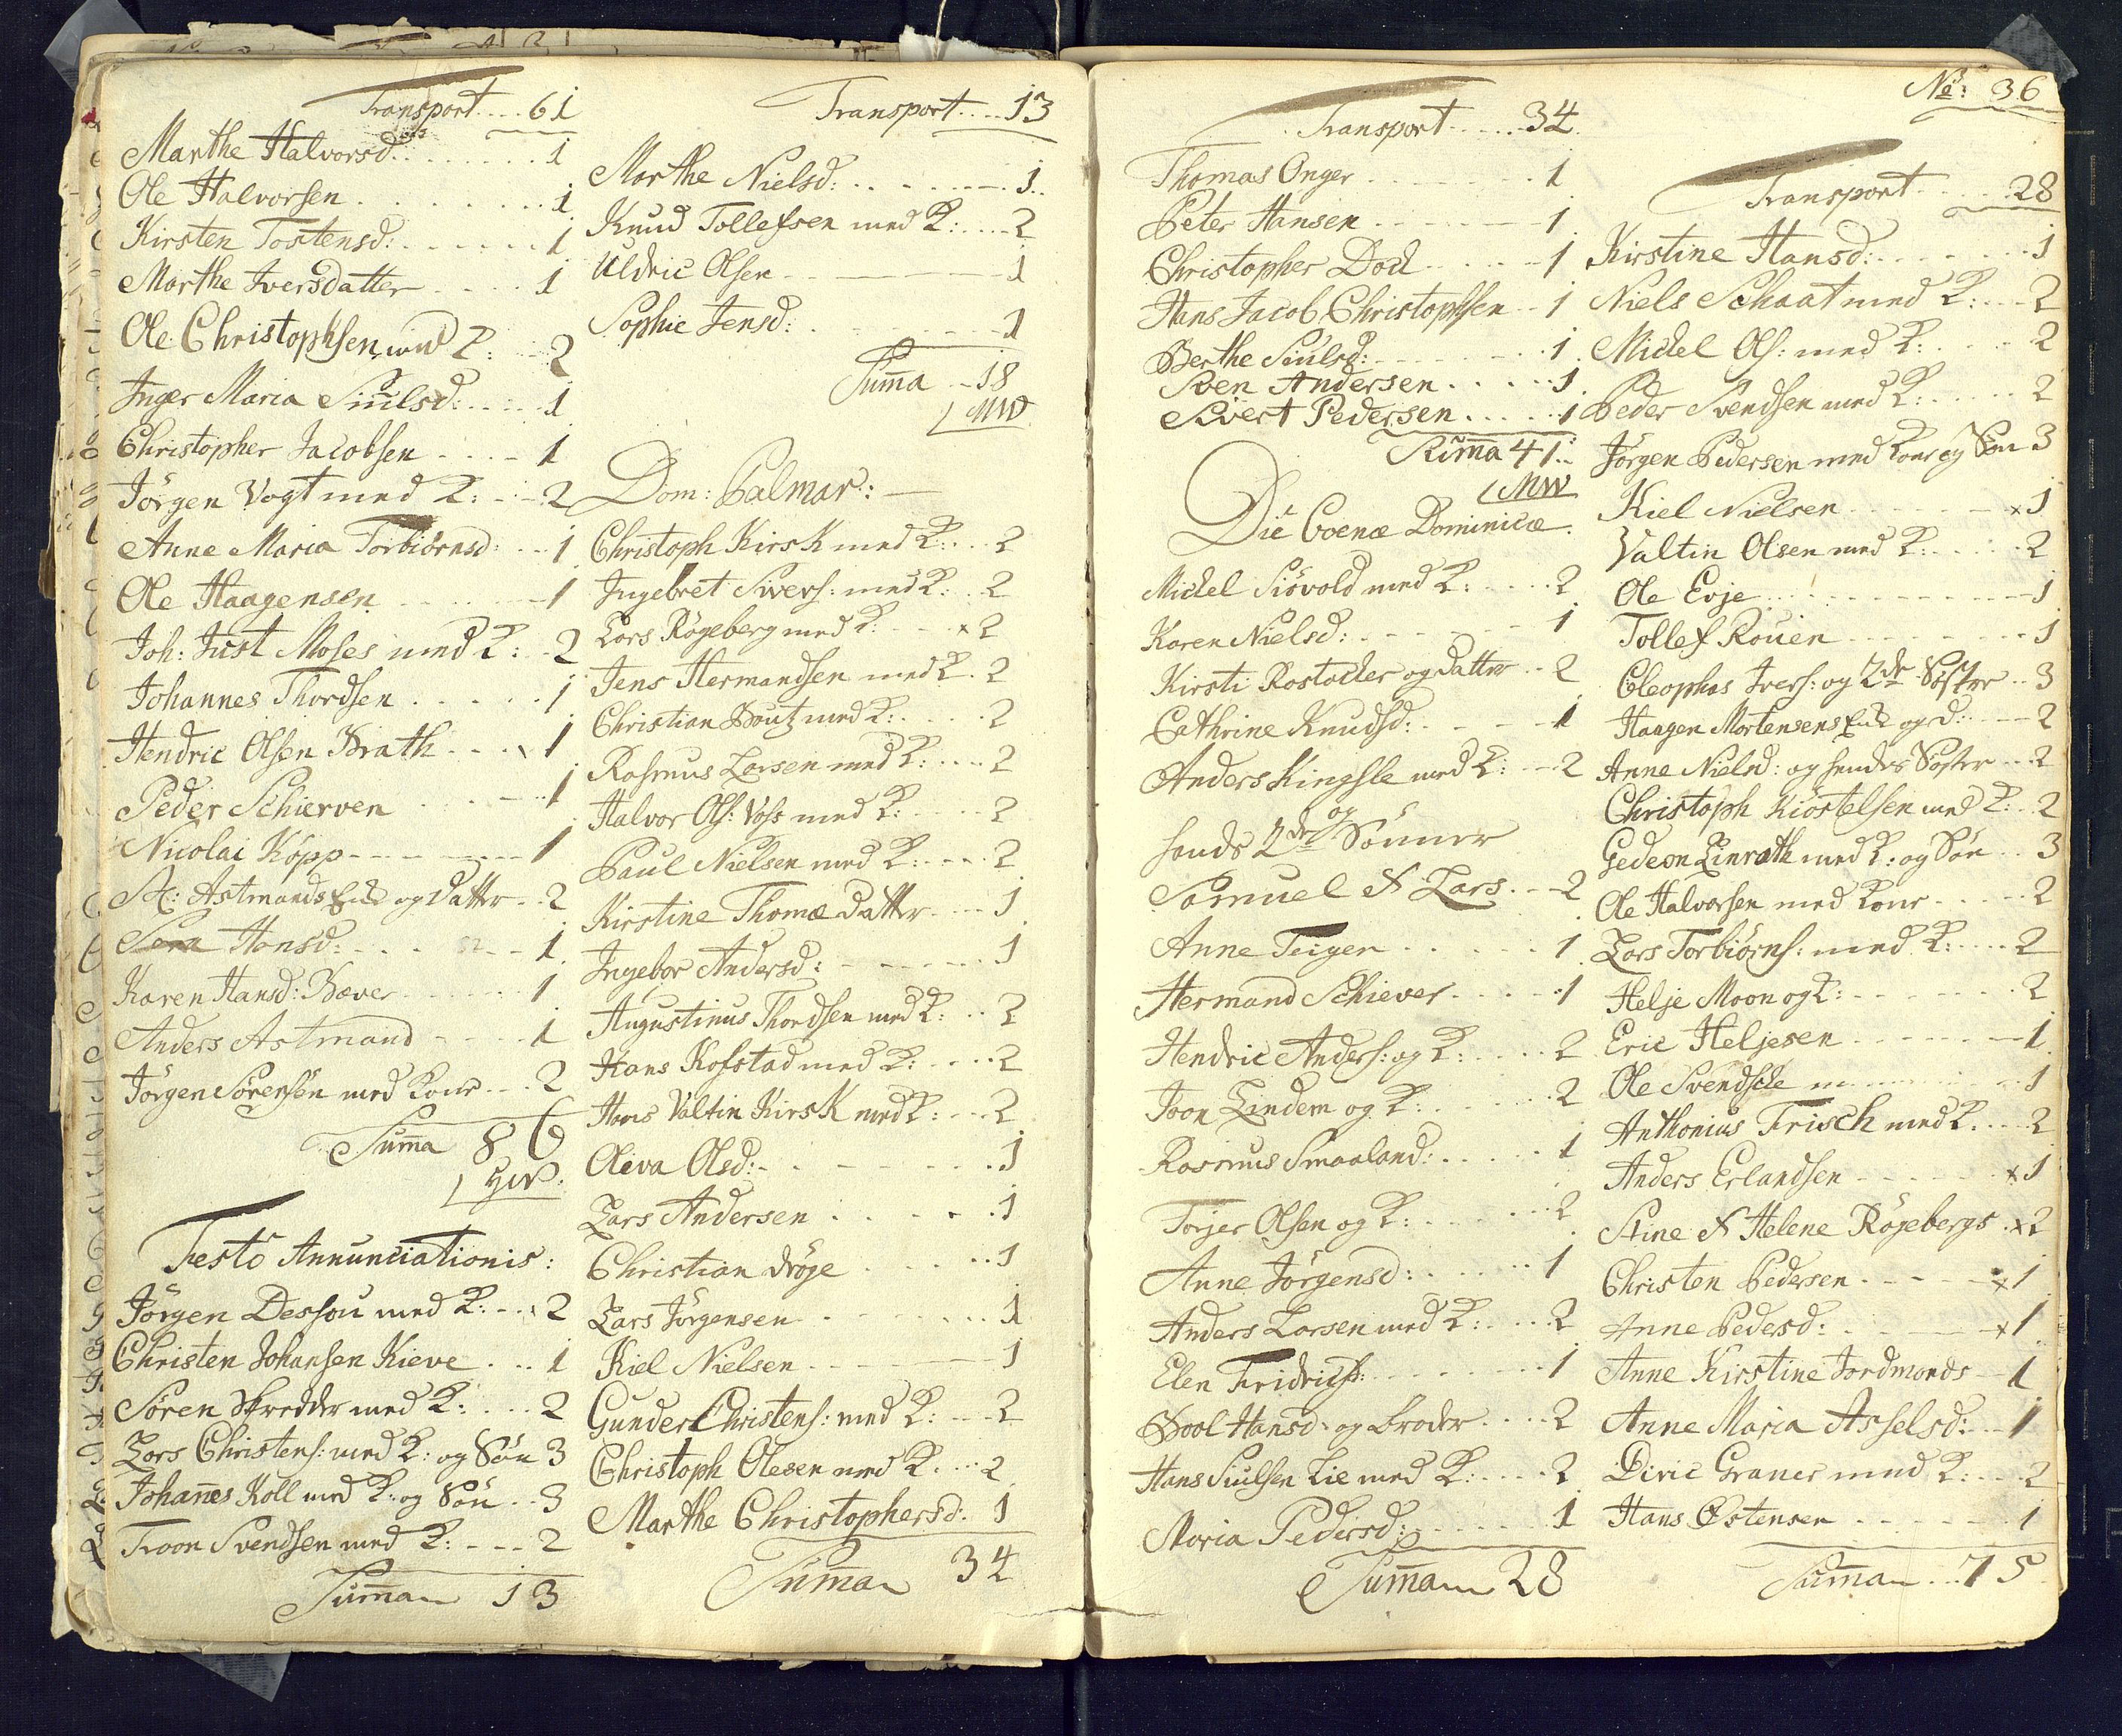 Transport .... 61
Marthe Halvorsd: ....... 1
Ole Halvorsen ....... 1
Kirsten Tostensd: ...... 1
Marthe Iversdatter .... 1
Ole Christophsen med K: .. 2
Inger Maria Siulsd: .... 1
Christopher Jacobsen .... 1
Jörgen Vogt med K: ... 2
Anne Maria Torbiörnsd: .. 1
Ole Haagensen ..... 1
Joh: Just Moses med K: . 2
Johannes Thordsen ..... 1
Hendric Olsen Brath .... 1
Peder Schierven .... 1
Nicolai Köpp ....... 1
St: Astmands Enke og Datter .. 2
Hansd: ..... 1
Karen Hansd: Bæver ..... 1
Anders Astmand .... 1
Jörgen Sörensen med Kone ... 2
Summa 86
Festo Annunciationis:
Jörgen Dessou med K: ... 2
Christen Johansen Kieve ... 1
Sören Skredder med K: ... 2
Lars Christens: med K: og Sön 3
Johannes Koll med K: og Sön .. 3
Troon Svendsen med K: ... 2
Summa 13
Transport .... 13
Marthe Nielsd: ...... 1
Knud Tollefsen med K: ... 2
Uldric Olsen ...... 1
Sophie Jensd: ...... 1
Summa .. 18
MW
Dom: Palmar:
Christoph Kirsk med K: .. 2
Ingebret Sivers: med K: .. 2
Lars Rögeberg med K: ... x 2
Jens Hermandsen med K . 2
Christian Boutz med K: .... 2
Rasmus Larsen med K: .... 2
Halvor Ols: Voss med K: .... 2
Paul Nielsen med K: .... 2
Kirstine Thomæ Datter .... 1
Ingebor Andersd: ...... 1
Augustinus Thordsen med K: .. 2
Hans Kofstad med K: ... 2
Hans Valtin Kirsk med K: ... 2
Oliva Olsd: ....... 1
Lars Andersen ..... 1
Christian Dröge ..... 1
Lars Jörgensen ..... 1
Kiel Nielsen ...... 1
Gunder Christens: med K: ... 2
Christoph Olesen med K: ... 2
Marthe Christophersd: 1
Summa 34
Transport ..... 34
Thomas Onger ...... 1
Peter Hansen ...... 1
Christopher Död .... 1
Hans Jacob Christophsen .. 1
Berthe Siulsd: ...... 1
Sven Andersen ..... 1
Sivert Pedersen ..... 1
Summa 41
MW
Die Coenæ Dominicæ.
Michel Siövold med K: .... 2
Karen Nielsd: ..... 1
Kirsti Rostocker og Datter .. 2
Cathrine Knudsd: .... 1
Anders Kingsle med K: .. 2
og
hands 2de Sönner
Samuel & Lars .. 2
Anne Teigen ..... 1
Hermand Schiever ..... 1
Hendric Anders: og K: .... 2
Joon Lindem og K: ..... 2
Rasmus Smaaland: ..... 1
Torjer Olsen og K: ..... 2
Anne Jörgensd: ..... 1
Anders Larsen med K: .... 2
Elen Fridrichs: ...... 1
Bool Hansd: og Broder .... 2
Hans Siulsen Lie med K: .... 2
Maria Pedersd: ...... 1
Summa 28
No: 36
Transport .... 28
Kirstine Hansd: ...... 1
Niels Schaat med K: ... 2
Michel Ols: med K: .... 2
Peder Svendsen med K: .... 2
Jörgen Pedersen med Kone og Sön 3
Kiel Nielsen ...... x 1
Valtin Olsen med K: .... 2
Ole Evje ....... 1
Tollef Rouen ...... 1
Cleophas Ivers: og 2de Söstre .. 3
Haagen Mortensens Enke og d: ... 2
Anne Nielsd: og hendes Söster ... 2
Christoph Kiöstelsen med K: .. 2
Gedeon Linrath med K: og Sön .. 3
Ole Halvorsen med Kone ..... 2
Lars Torbiörns: med K: .... 2
Helje Moon og K: ...... 2
Eric Heljesen ...... 1
Ole ..... 1
Anthonius Frisch med K. ... 2
Anders Erlandsen ..... x 1
Stine & Helene Rögebergs . x 2
Christen Pedersen .... x 1
Anne Pedersd: ..... x 1
Anne Kirstine Jordmoods .. 1
Anne Maria Asselsd: .. 1
Diric Graner med K: .... 2
Hans Østensen ...... 1
Summa ... 75